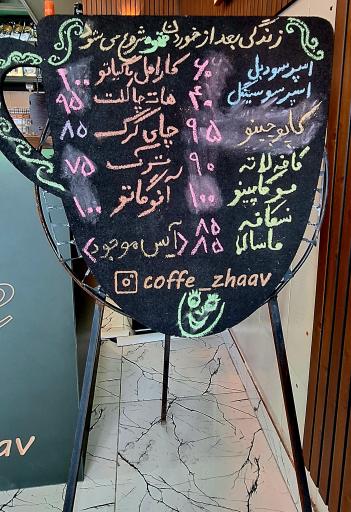 زندگی بعد از خوردن قهوه شروع می شود
اسپرسو دبل ۶۰ کارامل ماکیاتو ۱۰۰
اسپرسو سینگل ۴۰ هات چاکلت ۹۵
کاپوچینو ۹۵ چای کرک ۸۵
کافه لاته ۹۰ ترک ۷۵
موکاچینو ۱۰۰ آفوگاتو ۱۰۰
نسکافه ۸۵
ماسالا ۸۵ (آیس موجود)
coffe_zhaav
av